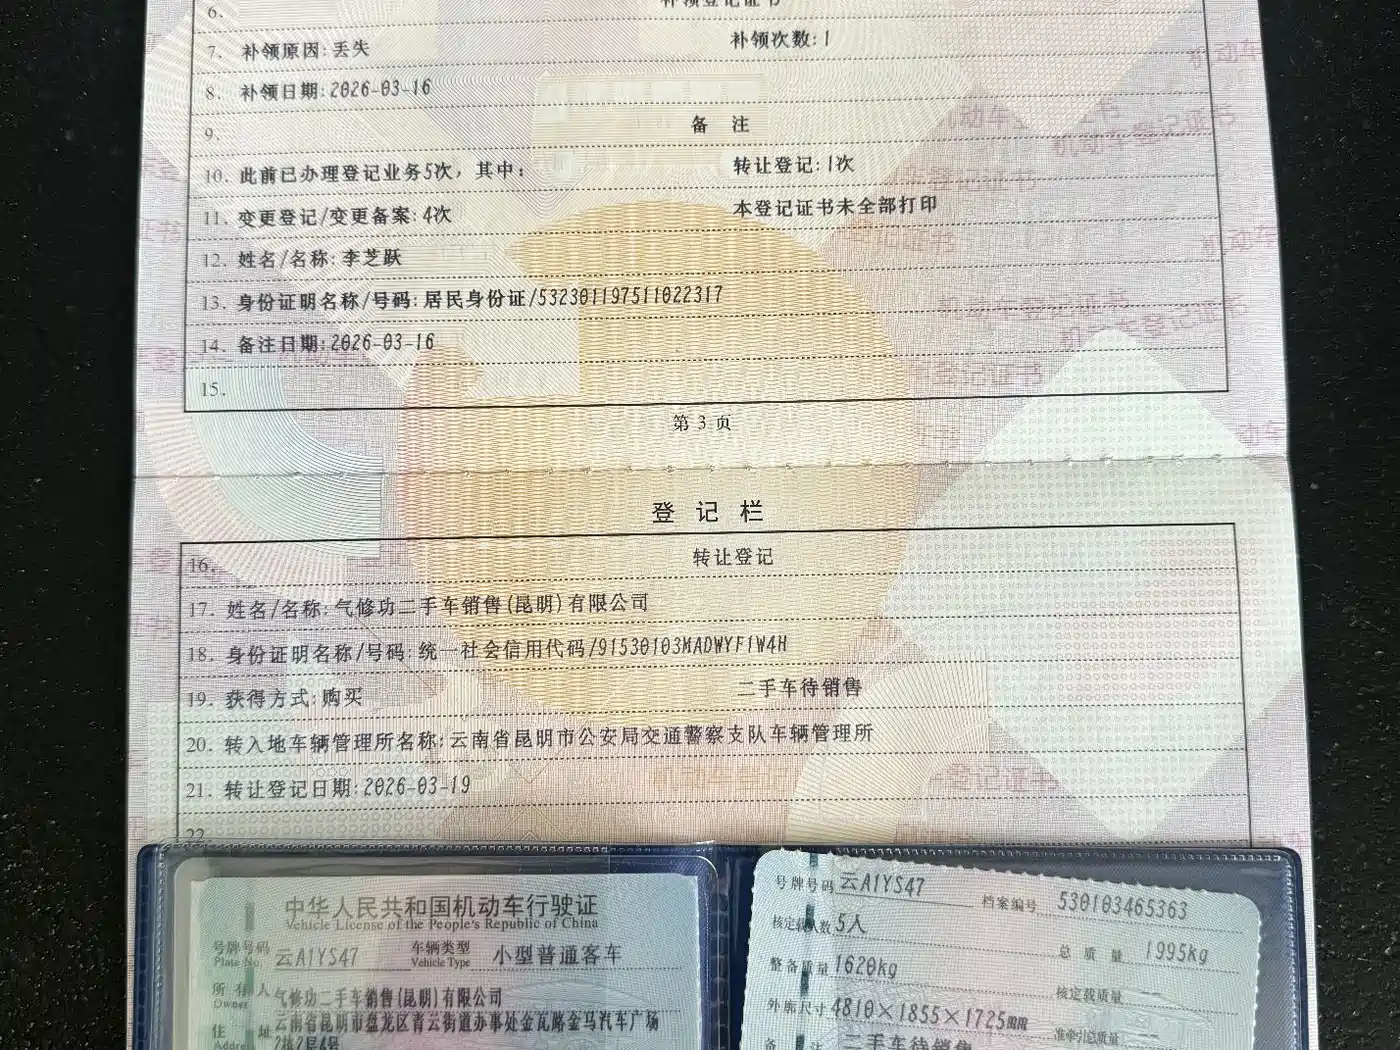 6. 补领登记证书
7. 补领原因:丢失 补领次数:1
8. 补领日期:2026-03-16
9. 备 注
10. 此前已办理登记业务5次，其中: 转让登记:1次
11. 变更登记/变更备案:4次 本登记证书未全部打印
12. 姓名/名称:李芝跃
13. 身份证明名称/号码:居民身份证/532301197511022317
14. 备注日期:2026-03-16
15.
第 3 页
登 记 栏
16. 转让登记
17. 姓名/名称:气修功二手车销售(昆明)有限公司
18. 身份证明名称/号码:统一社会信用代码/91530103MADWYF1W4H
19. 获得方式:购买 二手车待销售
20. 转入地车辆管理所名称:云南省昆明市公安局交通警察支队车辆管理所
21. 转让登记日期:2026-03-19
22.
中华人民共和国机动车行驶证
Vehicle License of the People's Republic of China
号牌号码 云A1YS47 车辆类型 小型普通客车
Plate No. Vehicle Type
所有人 气修功二手车销售(昆明)有限公司
Owner
住址 云南省昆明市盘龙区青云街道办事处金瓦路金马汽车广场
Address
号牌号码 云A1YS47 档案编号 530103465363
核定载人数 5人 总质量 1995kg
整备质量 1620kg 核定载质量 --
外廓尺寸 4810×1855×1725mm 准牵引总质量 --
备注 二手车待销售